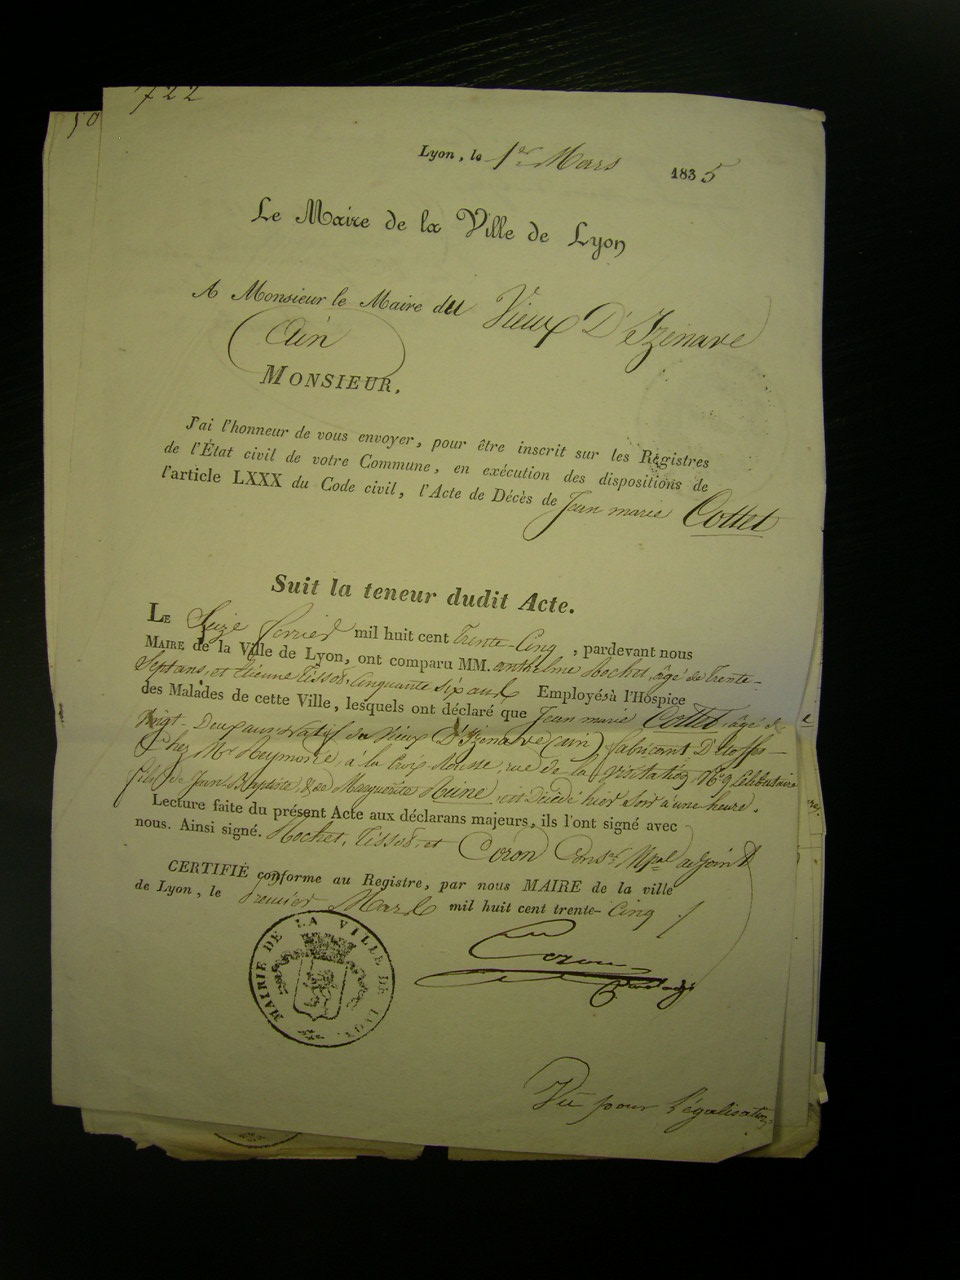 722
50
Lyon, le 1er Mars 1835
Le Maire de la Ville de Lyon
A Monsieur le Maire du Vieux D'Izenave
Ain
MONSIEUR,
J'ai l'honneur de vous envoyer, pour être inscrit sur les Registres
de l'État civil de votre Commune, en exécution des dispositions de
l'article LXXX du Code civil, l'Acte de Décès de Jean marie Cottet
Suit la teneur dudit Acte.
LE Seize fevrier mil huit cent trente-Cinq, pardevant nous
MAIRE de la Ville de Lyon, ont comparu MM. anthelme Hochet, âgé de trente-
Sept ans, et Etienne Tissot, Cinquante Six ans Employés à l'Hospice
des Malades de cette Ville, lesquels ont déclaré que Jean marie Cottet, âgé de
Vingt-Deux ans natif du Vieux D'Izenave (ain) fabricant D'étoffes
Chez Mr Reymonée, à la Croix Rousse, rue de la Visitation, No 9 Célibataire
fils de Jean Baptiste, & de Marguerite Reine, est Décédé hier soir à une heure.
Lecture faite du présent Acte aux déclarans majeurs, ils l'ont signé avec
nous. Ainsi signé. Hochet, Tissot, et Coron Conser Mpal adjoint
CERTIFIÉ conforme au Registre, par nous MAIRE de la ville
de Lyon, le Premier Mars mil huit cent trente-Cinq
Coron
MAIRIE DE LA VILLE DE LYON
Vu pour légalisation